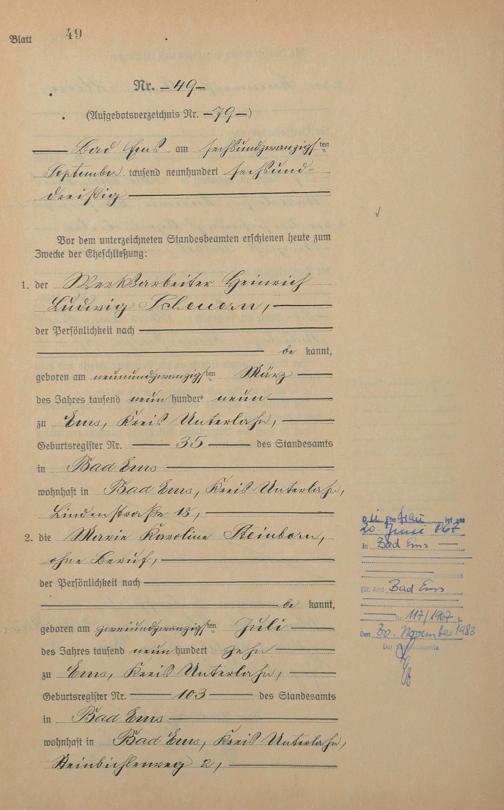 Blatt 49
Nr. -49-
(Aufgebotsverzeichnis Nr. -79-)
Bad Ems am sechsundzwanzigsten
September tausend neunhundert sechsund-
dreißig
Vor dem unterzeichneten Standesbeamten erschienen heute zum
Zwecke der Eheschließung:
1. der Werksarbeiter Heinrich
Ludwig Scheuern,
der Persönlichkeit nach
be kannt,
geboren am neunundzwanzigsten März
des Jahres tausend neun hundert neun
zu Ems, Kreis Unterlahn,
Geburtsregister Nr. 35 des Standesamts
in Bad Ems
wohnhaft in Bad Ems, Kreis Unterlahn,
Lindenstraße 15,
2. die Marie Karoline Steinborn,
ohne Beruf,
der Persönlichkeit nach
be kannt,
geboren am zweiundzwanzigsten Juli
des Jahres tausend neun hundert zehn
zu Ems, Kreis Unterlahn,
Geburtsregister Nr. 103 des Standesamts
in Bad Ems
wohnhaft in Bad Ems, Kreis Unterlahn,
2,
Frau ist am
20. 1967
in Bad Ems
Bad Ems
Nr. 117/1967
Den 30. November 1983